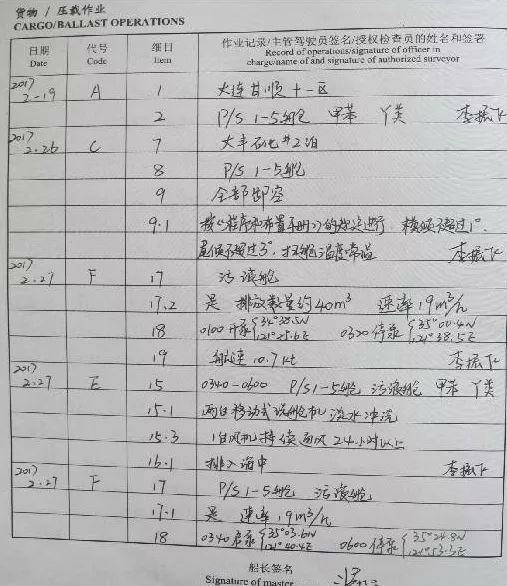 货物 / 压载作业
CARGO/BALLAST OPERATIONS
日期 代号 细目 作业记录/主管驾驶员签名/授权检查员的姓名和签署
Date Code Item Record of operations/signature of officer in
charge/name of and signature of authorized surveyor
2017
2-19 A 1 大连甘 十一区
2 P/S 1-5舱 甲苯 Y类 李振
2017
2.26 C 7 大丰石化#2泊
8 P/S 1-5舱
9 全部卸空
9.1 按《程序和布置手册》的规定进行，横倾不超过1°.
尾倾不超过3°，扫舱温度常温 李振
2017
2.27 F 17 污液舱
17.2 是 排放数量约40m³ 速率19m³/h
18 0100开泵 34°38.5N 121°25.6E 0320停泵 35°00.4N 121°38.5E
19 船速 10.7kt 李振
2017
2.27 E 15 0340-0600 P/S 1-5舱 污液舱 甲苯 Y类
15.1 两台移动式洗舱机 淡水冲洗
15.3 1台风机持续 24小时以上
16.1 排入海中 李振
2017
2.27 F 17 P/S 1-5舱 污液舱
17.1 是 速率19m³/h
18 0340启泵 35°03.6N 121°40.4E 0600停泵 35°24.8N 121°53.3E
船长签名
Signature of master